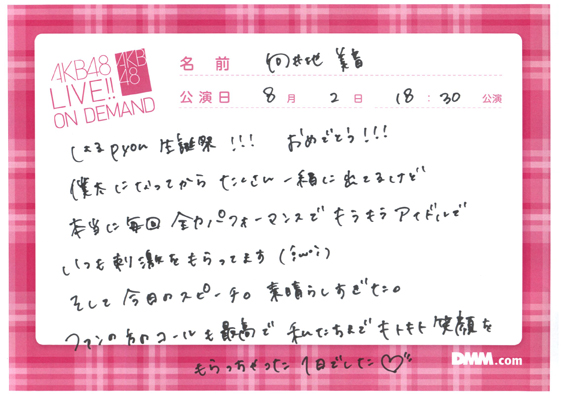 AKB48
LIVE!!
ON DEMAND
AKB
48
名前 向井地 美音
公演日 8月 2日 18:30 公演
しえるpyon 生誕祭!!! おめでとう!!!
僕太になってから たくさん一緒に出てるけど
本当に毎回 全力パフォーマンスで キラキラ アイドルで
いつも刺激をもらってます(;ω;)
そして今日のスピーチ。素晴らしすぎた。
ファンの方のコールも最高で 私たちまでキトキト 笑顔を
もらっちゃった1日でした♡
DMM.com